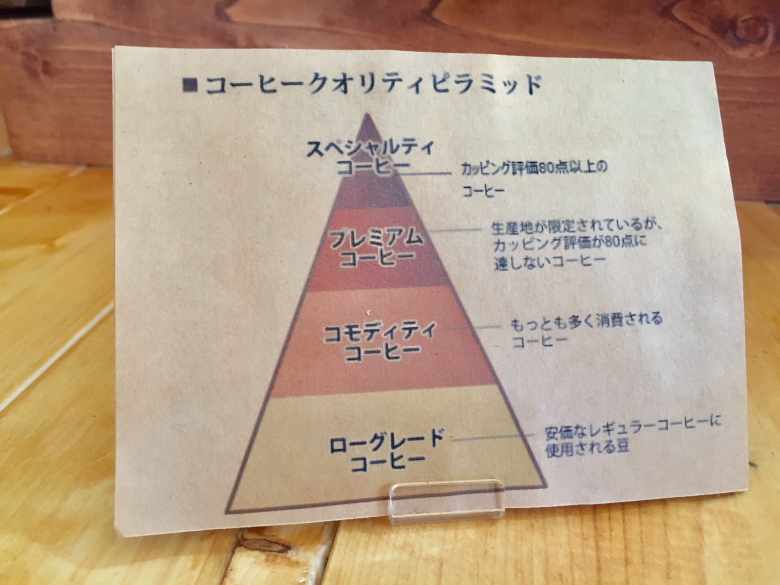 ■コーヒークオリティピラミッド
スペシャルティ
コーヒー
カッピング評価80点以上の
コーヒー
プレミアム
コーヒー
生産地が限定されているが、
カッピング評価が80点に
達しないコーヒー
コモディティ
コーヒー
もっとも多く消費される
コーヒー
ローグレード
コーヒー
安価なレギュラーコーヒーに
使用される豆